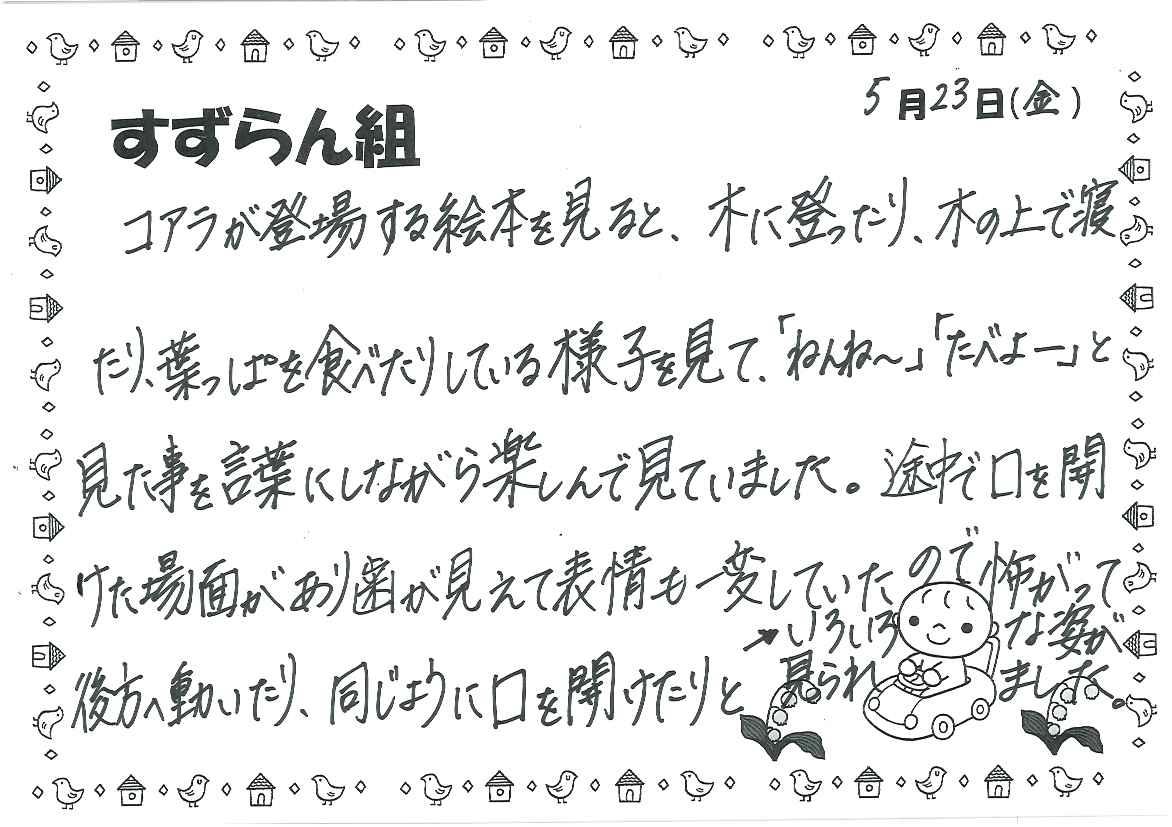 5月23日(金)
すずらん組
コアラが登場する絵本を見ると、木に登ったり、木の上で寝
たり、葉っぱを食べたりしている様子を見て、「ねんね〜」「たべよー」と
見た事を言葉にしながら楽しんで見ていました。途中で口を開
けた場面があり歯が見えて表情も一変していたので怖がって
後方へ動いたり、同じように口を開けたりと
→いろいろな姿が
見られました。